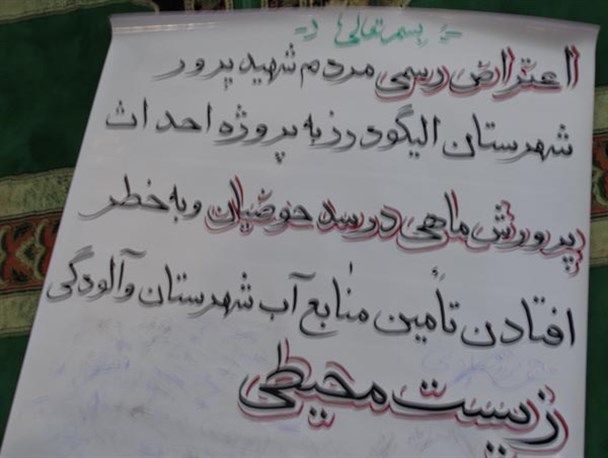 بسم تعالی
اعتراض رسمی مردم شهید پرور
شهرستان الیگودرز به پروژه احداث
پرورش ماهی در سد حوضیان و به خطر
افتادن تأمین منابع آب شهرستان و آلودگی
زیست محیطی